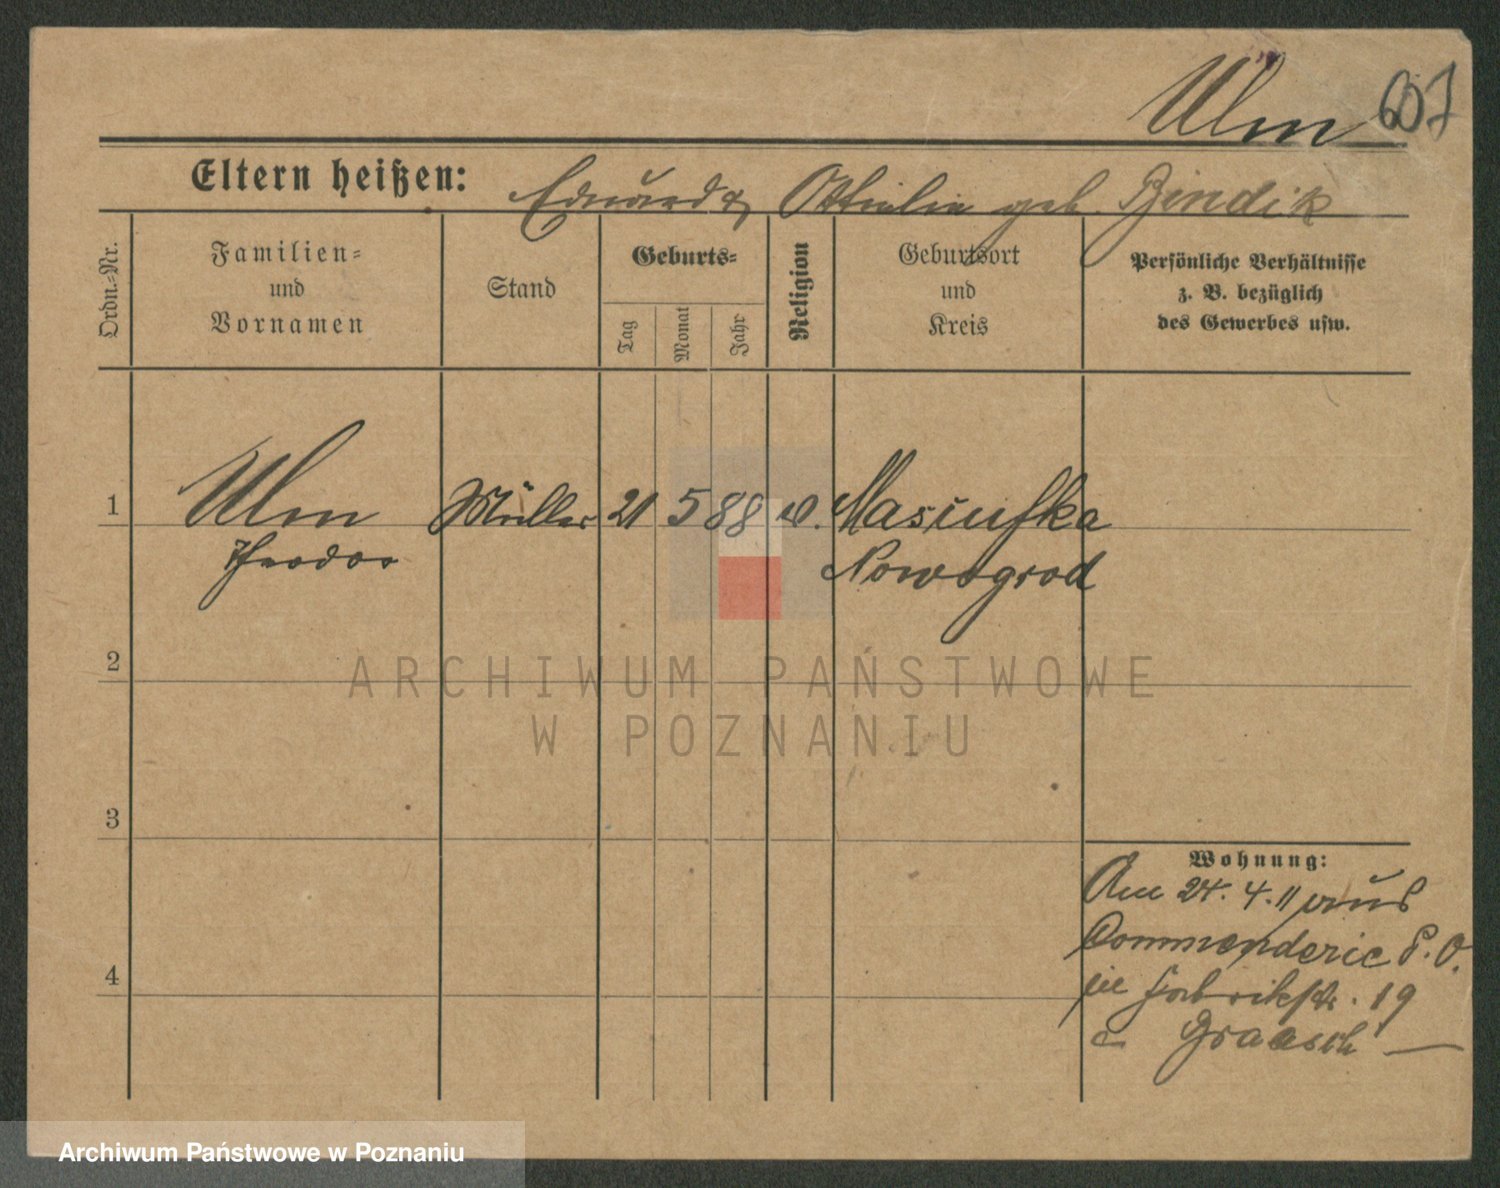 Ulm 607
Eltern heißen: Eduard & Ottilie geb. Bindik
Ordn.-Nr.
Familien-
und
Vornamen
Stand
Geburts-
Tag
Monat
Jahr
Religion
Geburtsort
und
Kreis
Persönliche Verhältnisse
z. B. bezüglich
des Gewerbes usw.
1 Ulm Müller 21 5 88 Masiufka
Theodor Nowogrod
2
3
4
Wohnung:
Am 24. 4. 11 aus
Commenderie P. O.
in Fabrikstr. 19
Graasch
ARCHIWUM PAŃSTWOWE
W POZNANIU
Archiwum Państwowe w Poznaniu